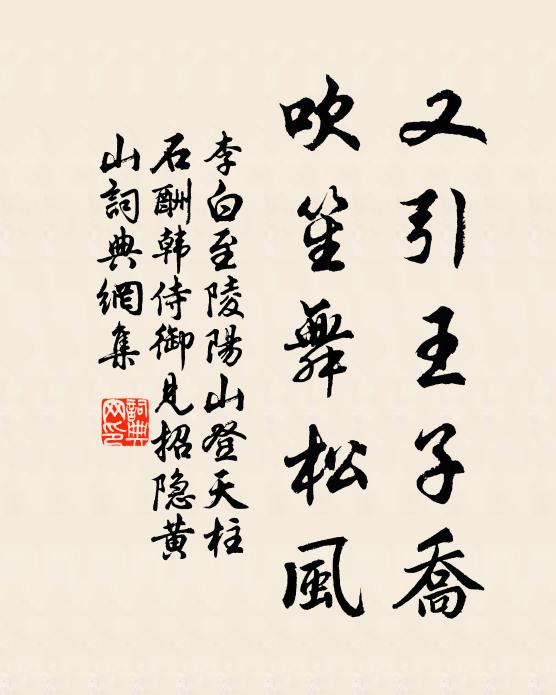 又引王子喬
吹笙舞松風
李白至陵陽山登天柱
石酬韩侍御見招隐黄
山詞典網集
詞典
网印